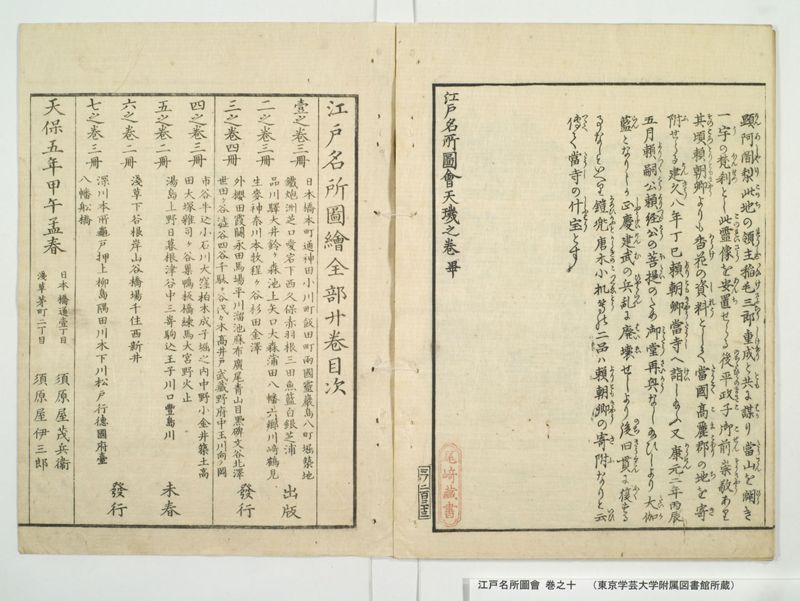 顕阿闍梨此地の領主稲毛三郎重成と共に謀り當山を闢き
一宇の梵刹とし此霊像を安置せしる後平政子御前崇敬あり
其頃頼朝卿よりも香花の資料として當國高麗郡の地を寄
附せらる建久八年丁巳頼朝卿當寺へ詣しあふ又康元二年丙辰
五月頼嗣公頼経公の菩提のため御堂再興なしあひしより大伽
藍となりしか正慶建武の兵乱に廃壊せしより後旧貫に復する
鎧兜唐木小机二品ハ頼朝卿の寄附なりと云
傳へ當寺の什宝とす
江戸名所圖會天璣之巻畢
尾崎藏書
江戸名所圖繪全部廿巻目次
壹之巻三冊
日本橋本町通神田小川町飯田町兩國靈巖島八町堀築地
鐵炮洲芝口愛宕下西久保赤羽根三田魚籃白銀芝浦
出版
二之巻三冊
品川驛大井鈴ヶ森池上矢口大森蒲田八幡六郷川崎鶴見
生麥神奈川本牧程ヶ谷杉田金澤
三之巻四冊
外櫻田霞關永田馬場平川溜池麻布廣尾青山目黒碑文谷北澤
世田ヶ谷澁谷四谷千駄ヶ谷代々木高井戸武藏野府中玉川向ヶ岡
發行
四之巻三冊
市谷牛込小石川大窪柏木成子堀之内中野小金井築土高
田大塚雜司ヶ谷巣鴨板橋練馬大宮野火止
五之巻二冊
湯島上野日暮根津谷中三崎駒込王子川口豐島川
未春
六之巻二冊
淺草下谷根岸山谷橋場千住西新井
七之巻三冊
深川本所龜戸押上柳島隅田川木下川松戸行德國府臺
八幡舩橋
發行
天保五年甲午孟春
日本橋通壹丁目
須原屋茂兵衞
淺草茅町二丁目
須原屋伊三郎
江戸名所圖會 巻之十 （東京学芸大学附属図書館所蔵）